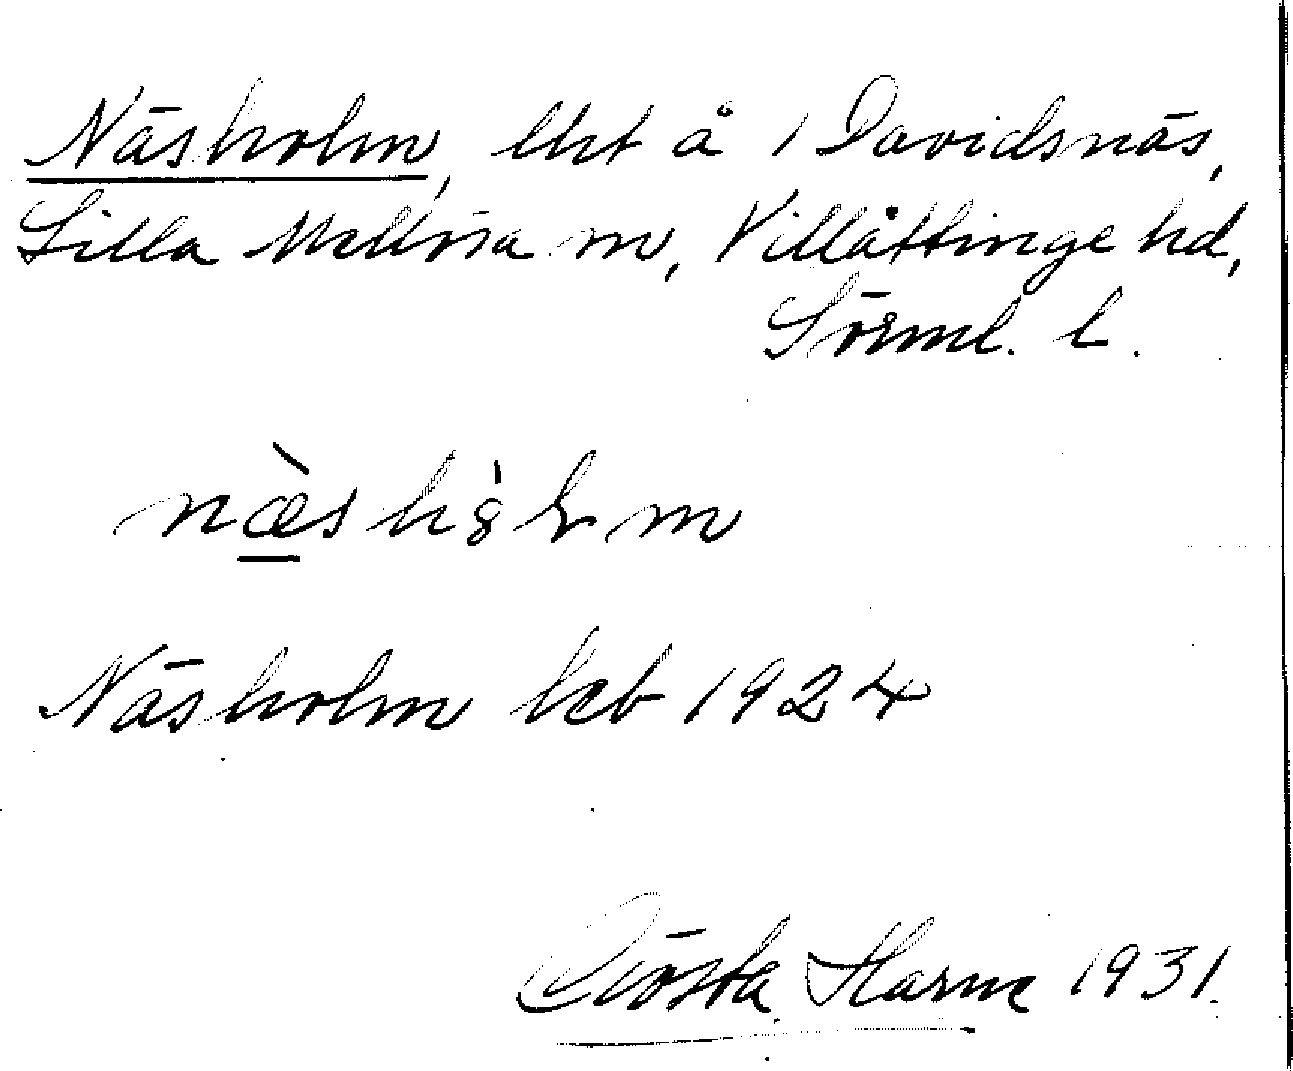 Näsholm, lht å 1 Davidsnäs,
Lilla Mellösa sn, Villåttinge hd,
Sörml. l.
næ̀sh8̀lm
Näsholm kb 1924
Gösta Harne 1931.